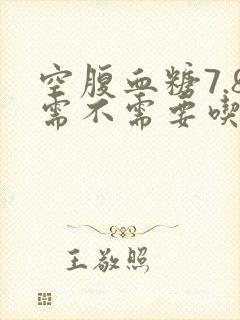 空腹血糖7.8
需不需要喫
王敬照